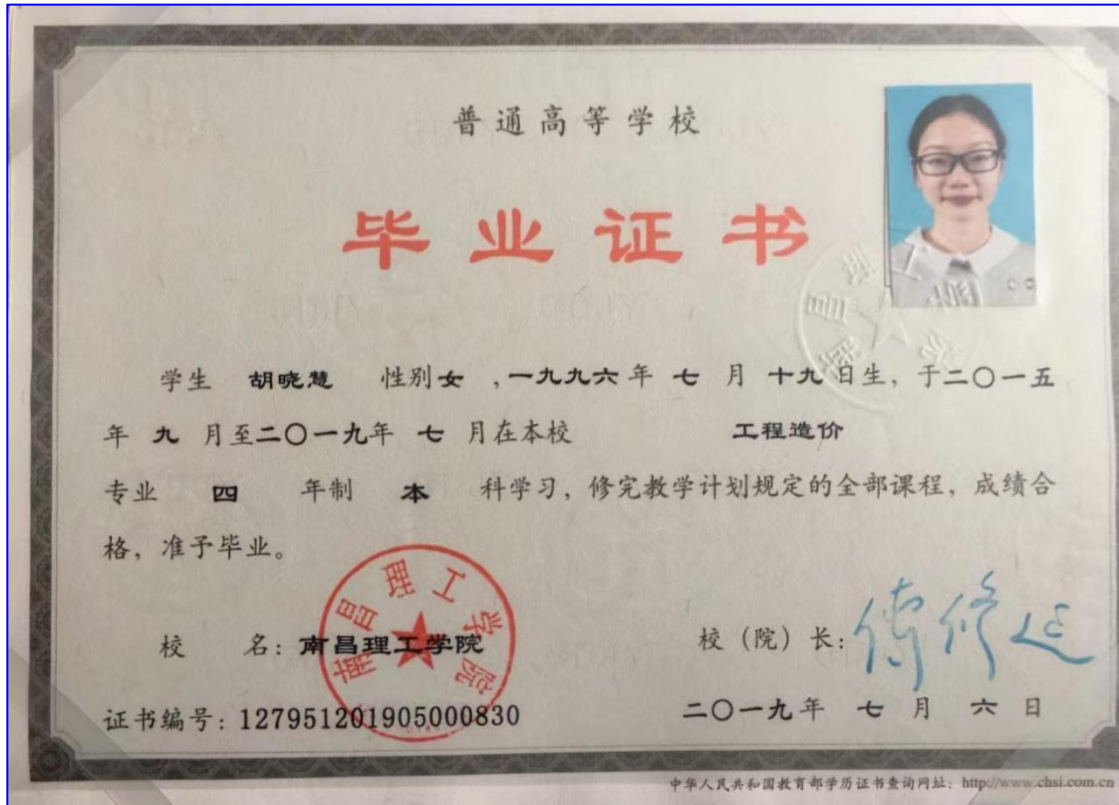 普通高等学校
毕业证书
学生 胡晓慧 性别女，一九九六年 七 月 十九日生，于二〇一五
年 九 月至二〇一九年 七 月在本校 工程造价
专业 四 年制 本 科学习，修完教学计划规定的全部课程，成绩合
格，准予毕业。
南昌理工学院
校 名：南昌理工学院
校（院）长：
证书编号：127951201905000830
二〇一九年 七 月 六 日
中华人民共和国教育部学历证书查询网址：http://www.chsi.com.cn